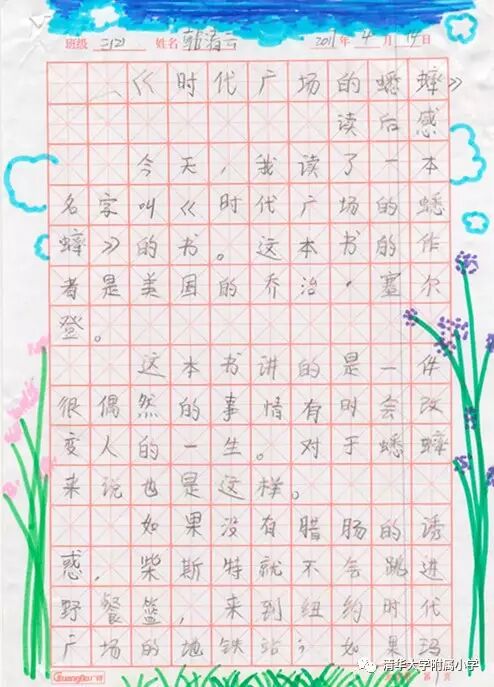 班级 三(2) 姓名 韩清云 2011年4月14日
《时代广场的蟋蟀》
读后感
今天，我读了一本
名字叫《时代广场的蟋
蟀》的书。这本书的作
者是美国的乔治·塞尔
登。
这本书讲的是一件
很偶然的事情有时会改
变人的一生。对于蟋蟀
来说也是这样。
如果没有腊肠的诱
惑，柴斯特就不会跳进
野餐篮，来到纽约时代
广场的地铁站；如果玛
GuangBo广博
第1页
清华大学附属小学